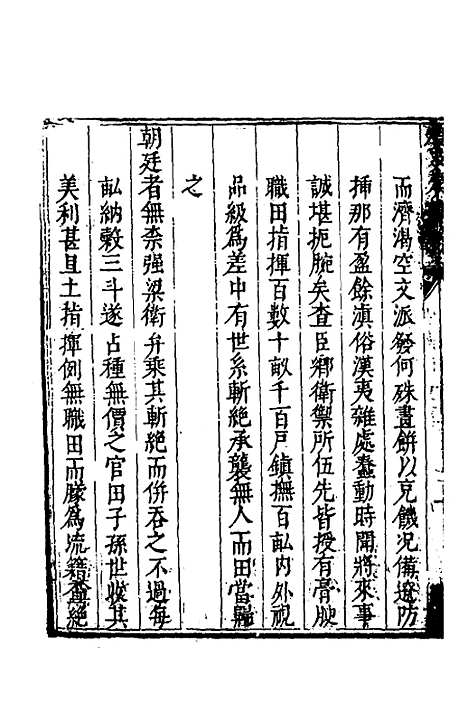 而濟渴空文派發何殊畫餅以充饑况備邊防
揷那有盈餘滇俗漢夷雜處蠢動時聞將來事
誠堪扼腕矣查臣鄉衛禦所伍先皆授有膏腴
職田指揮百數十畝千百戶鎮撫百畝內外視
品級爲差中有世系斬絕承襲無人而田當歸
之
朝廷者無柰强梁衛弁乘其斬絕而併吞之不過每
畝納穀三斗遂占種無價之官田子孫世收其
美利甚且土指揮例無職田而朦爲流籍查絕